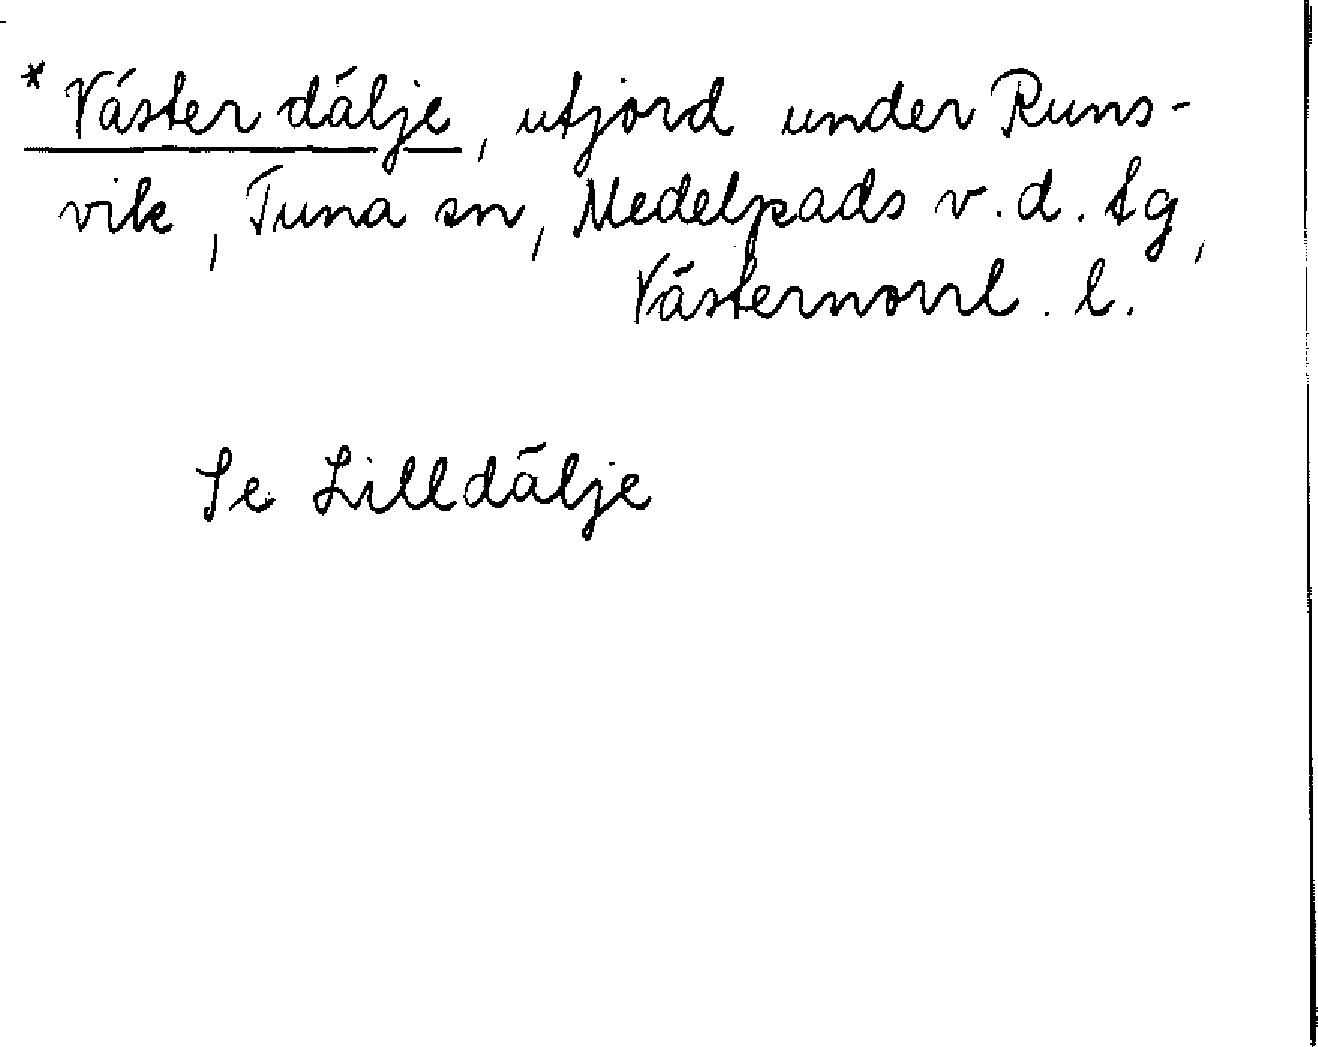 * Västerdälje, utjord under Runs-
vik, Tuna sn, Medelpads v.d. tg,
Västernorrl. l.
Se Lilldälje